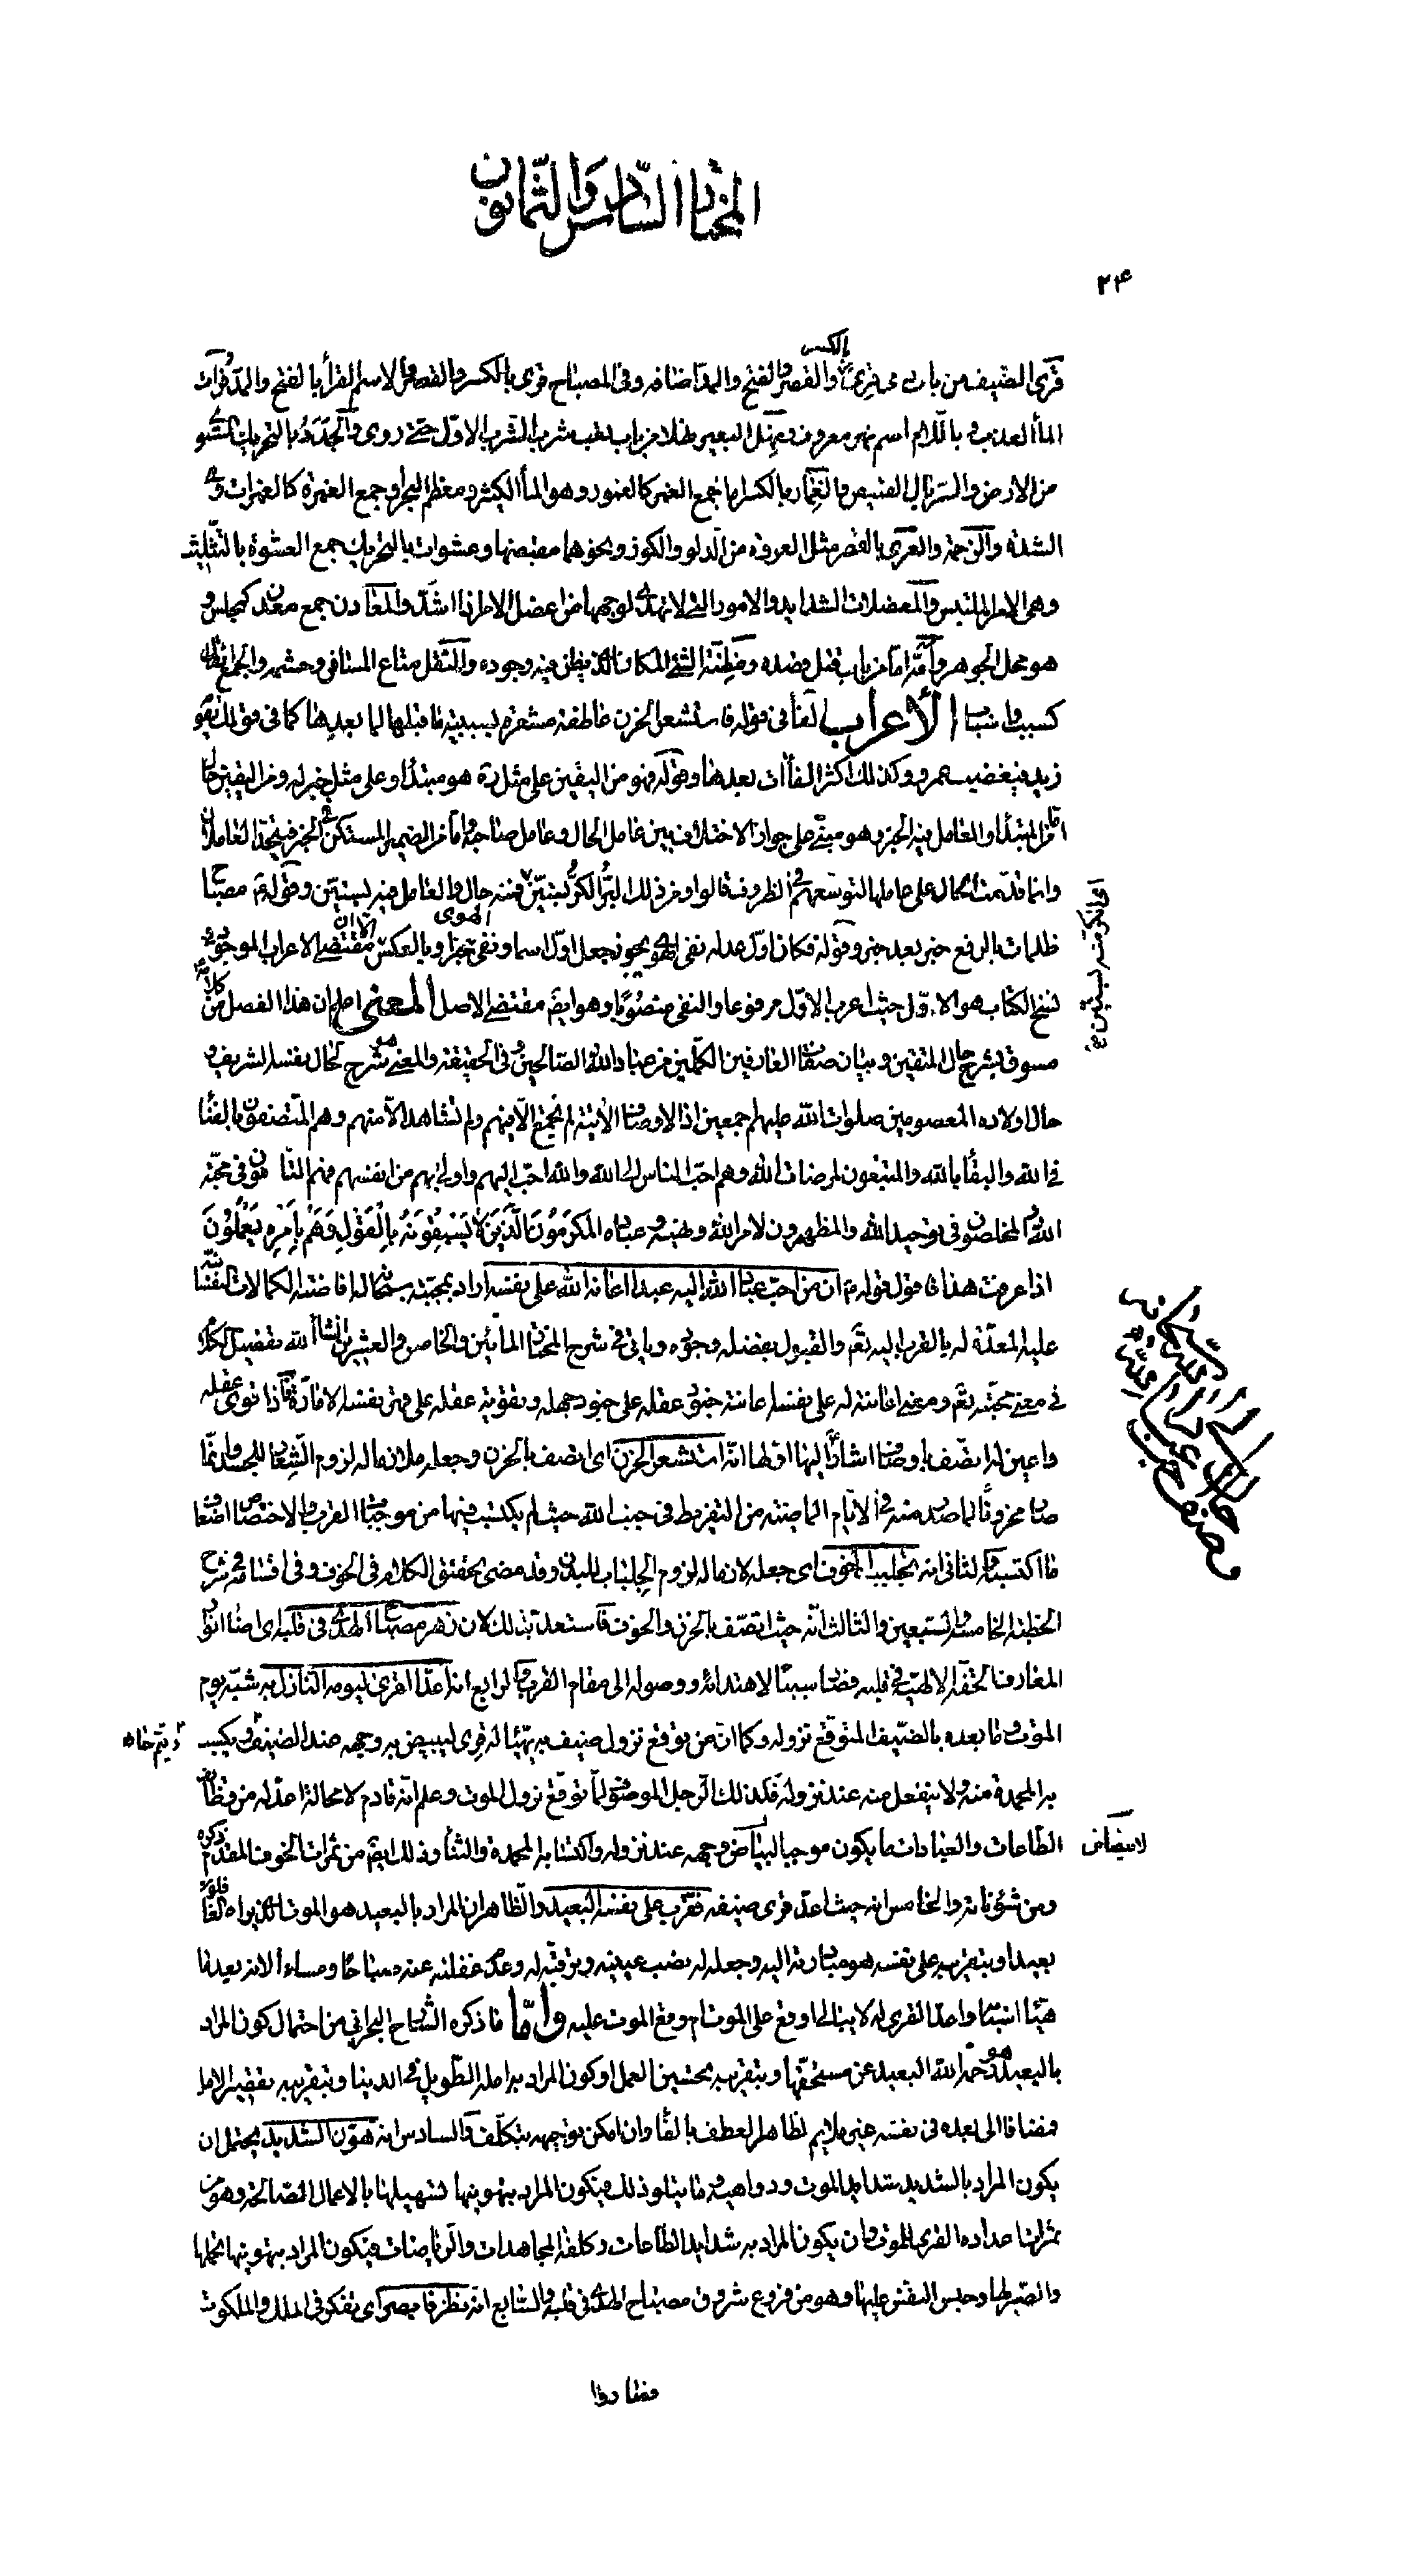 المختار السادس والثمانون
۲۴
بالكسر
قرى الضيف من باب رمى قرى بالكسر والقصر والفتح والمد اضافه وفى المصباح قرى بالكسر والقصر والاسم القراء بالفتح والمد وفرات
الماء العذب وباللام اسم نهر معروف ونهل البعير نهلا من باب تعب شرب الشرب الاول حتى روى والجدد بالتحريك المستوى
من الارض والسربال القميص والغمار بالكسر اما جمع الغمر كالغمور وهو الماء الكثير ومعظم البحر او جمع الغمرة كالغمرات وهى
الشدة والزحمة والعرى بالقصر مثل العروة من الدلو والكوز ونحوهما مقبضها وعشوات بالتحريك جمع العشوة بالتثليث
وهى الامر الملتبس والمعضلات الشدايد والامور التى لا تهتدى لوجهها من اعضل الامر اذا اشتد والمعادن جمع معدن كمجلس و
هو محل الجوهر وأمه اما من باب قتل قصده ومظنة الشئ المكان الذى يظن فيه وجوده والثقل متاع المسافر وحشمه والجمع اثقال
كسبب واسباب الأعراب الفاء فى قوله فاستشعر الحزن عاطفة مشعرة بسببية ما قبلها لما بعدها كما فى قولك يقوم
زيد فيغضب عمرو وكذلك اكثر الفاآت بعدها وقوله فهو من اليقين على مثل ره هو مبتداء وعلى مثل خبر له ومن اليقين حال
اما من المبتداء والعامل فيه الخبر وهو مبنى على جواز الاختلاف بين عامل الحال وعامل صاحبه واما من الضمير المستكن فى الخبر فيتحد العاملان
وانما قدمت الحال على عاملها لتوسعهم فى الظروف قالوا ومن ذلك البر الكر بستين فمنه حال والعامل فيه بستين وقوله ع مصباح
الهوى الا ان
ظلمات بالرفع خبر بعد خبر وقوله فكان اول عدله نفى الهوى يجوز جعل اول اسما ونفى خبرا وبالعكس مقتضى الاعراب الموجود فى
نسخ الكتاب هو الاول حيث اعرب الاول مرفوعا والنفى منصوبا وهو ايضا مقتضى الاصل المعنى اعلم ان هذا الفصل من كلامه
مسوق لشرح حال المتقين وبيان صفات العارفين الكملين من عباد الله الصالحين وفى الحقيقة والمعنى هو شرح لحال نفسه الشريف و
حال اولاده المعصومين صلوات الله عليهم اجمعين اذ الاوصاف الاتية لم تجتمع الا فيهم ولم تشاهد الا منهم وهم المتصفون بالفناء
فى الله والبقاء بالله والمتبعون لمرضات الله وهم احب الناس الى الله والله احب اليهم واولى بهم من انفسهم فهم التامون فى محبة
الله والمخلصون فى توحيد الله والمظهرون لامر الله ونهيه وعباده المكرمون الَّذِينَ لا يَسْبِقُونَهُ بِالْقَوْلِ وَهُمْ بِأَمْرِهِ يَعْمَلُونَ
اذا عرفت هذا فاقول قوله ع ان من احب عباد الله اليه عبدا اعانه الله على نفسه اراد بمحبته سبحانه له افاضته الكمالات النفسانية
عليه المعدة له بالقرب اليه تعالى والقبول بفضله وجوده وياتى فى شرح المختار المأتين والخامس والعشرين انشاء الله تفصيل الكلام
فى معنى محبته تعالى ومعنى اعانته له على نفسه اعانته جنود عقله على جنود جهله وتقوية عقله على قهر نفسه الامارة فاذا قوى عقله
واعين له اتصف باوصاف اشار اليها اولها انه استشعر الحزن اى اتصف بالحزن وجعله ملازما له لزوم الشعار للجسد وانما
صار محزونا لما صدر منه فى الايام الماضية من التفريط فى جنب الله حيث لم يكتسب فيها من موجبات القرب والاختصاص اضعاف
ما اكتسبه والثانى انه تجلبب الخوف اى جعله لازما له لزوم الجلباب للبدن وقد مضى تحقيق الكلام فى الخوف وفى اقسامه فى شرح
الخطبة الخامسة والسبعين والثالث انه حيث اتصف بالحزن والخوف فاستعد بذلك لان زهر مصباح الهدى فى قلبه اى اضاء انوار
المعارف الحقة الالهية فى قلبه فصار سببا لاهتدائه ووصوله الى مقام القرب والرابع انه اعد القرى ليومه النازل به شبه يوم
الموت وما بعده بالضيف المتوقع نزوله وكما ان من توقع نزول ضيف به تهيأ له قرى ليبيض به وجهه عند الضيف ويكسب
به المحمدة منه ولا ينفعل منه عند نزوله فكذلك الرجل الموصوف لما توقع نزول الموت وعلم انه قادم لا محالة اعد له من وظائف
الطاعات والعبادات ما يكون موجبا لبياض وجهه عند نزوله واكتسابه المحمدة والثناء وذلك ايضا من ثمرات الخوف المقدم ذكره
ومن شئوناته والخامس انه حيث اعد قرى ضيفه فقرب على نفسه البعيد والظاهر ان المراد بالبعيد هو الموت الذى يراه الغافلون
بعيدا وبتقريبه على نفسه هو مبادرته اليه وجعله له نصب عينيه وترقبه له وعدم غفلته عنه صباحا ومساء لانه بعد ما
هيأ اسبابه واعد القرى له لا يبالى اوقع على الموت ام وقع الموت عليه واما ما ذكره الشارح البحرانى من احتمال كون المراد
بالبعيد هو رحمة الله البعيد عن مستحقها وبتقريبه تحسين العمل او كون المراد به امله الطويل فى الدنيا وبتقريبه تقصير الامل
فمضافا الى بعده فى نفسه غير ملايم لظاهر العطف بالفاء وان امكن توجيهه بتكلف والسادس انه هون الشديد يحتمل ان
يكون المراد بالشديد شدايد الموت ودواهيه وما يتلو ذلك فيكون المراد بتهوينها تسهيلها بالاعمال الصالحة وهو من
ثمرات اعداده القرى للموت وان يكون المراد به شدايد الطاعات وكلفة المجاهدات والرياضات فيكون المراد بتهوينها تحملها
والصبر لها وحبس النفس عليها وهو من فروع شروق مصباح الهدى فى قلبه والسابع انه نظر فابصر اى تفكر فى الملك والملكوت
اى الكر منه بستين
لابيضاض